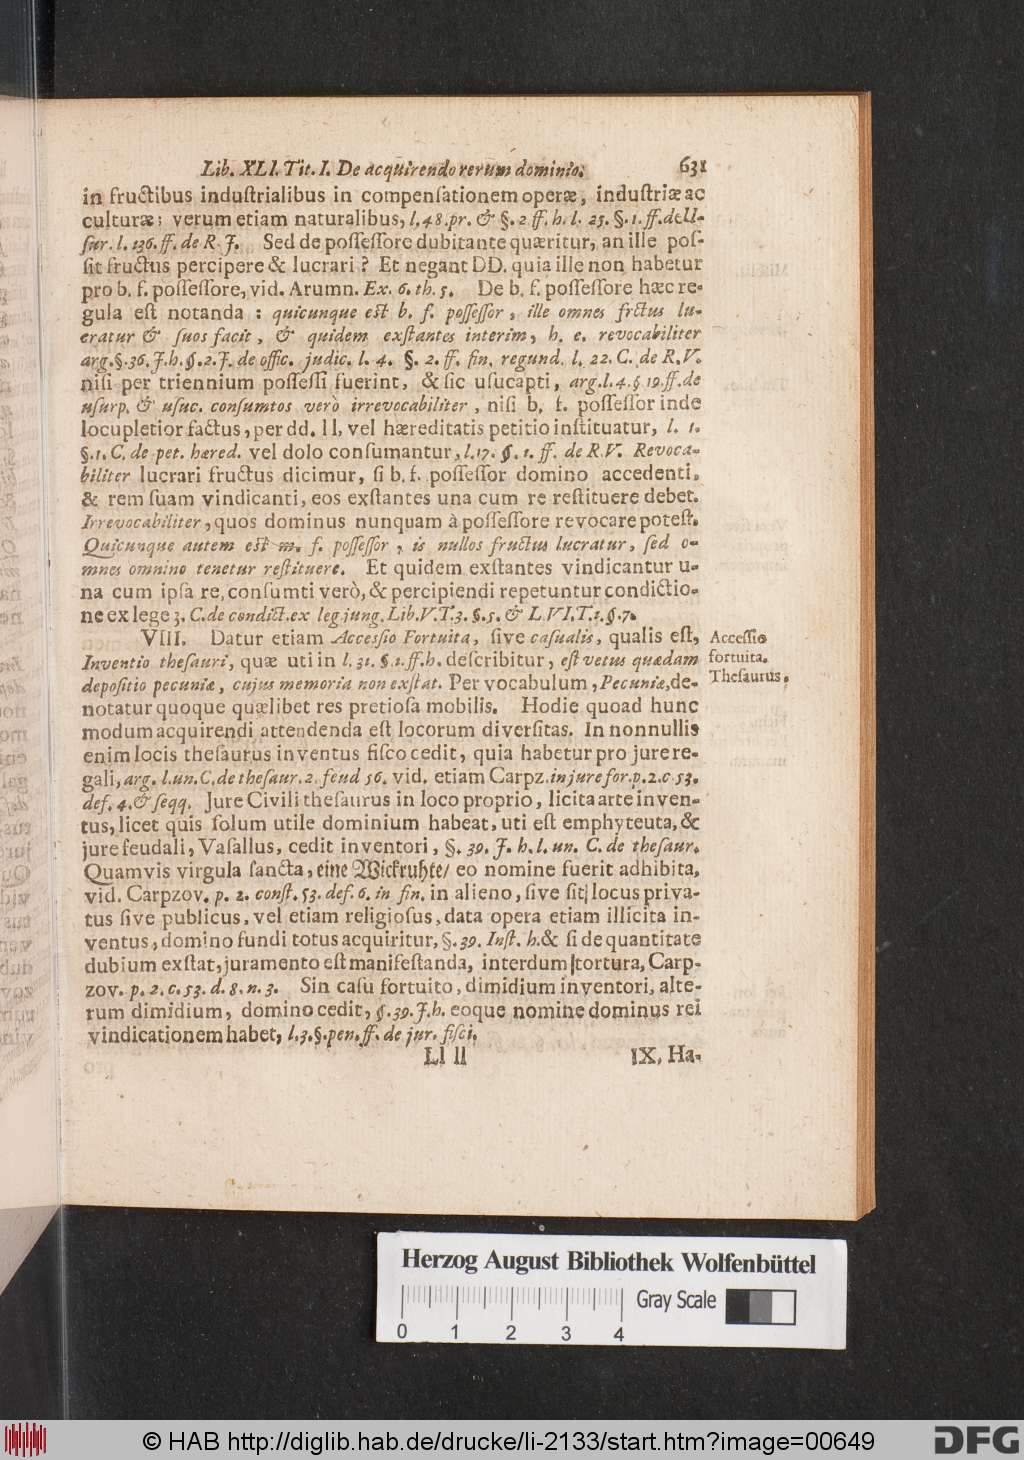 Lib. XLI. Tit. I. De acquirendo rerum dominio. 631
in fructibus industrialibus in compensationem operæ, industriæ ac
culturæ; verum etiam naturalibus, l. 48. pr. & §. 2 ff. h. l. 25. §. 1. ff. de U-
sur. l. 136. ff. de R. J. Sed de possessore dubitante quæritur, an ille pos-
sit fructus percipere & lucrari? Et negant DD. quia ille non habetur
pro b. f. possessore, vid. Arumn. Ex. 6. th. 5. De b. f. possessore hæc re-
gula est notanda: quicunque est b. f. possessor, ille omnes frctus lu-
eratur & suos facit, & quidem exstantes interim, h. e. revocabiliter
arg. §. 36. J. h. §. 2. J. de offic. judic. l. 4. §. 2. ff. fin. regund. l. 22. C. de R. V.
nisi per triennium possessi fuerint, & sic usucapti, arg. l. 4. § 19. ff. de
usurp. & usuc. consumtos verò irrevocabiliter, nisi b. f. possessor inde
locupletior factus, per dd. ll, vel hæreditatis petitio instituatur, l. 1.
§. 1. C. de pet. hæred. vel dolo consumantur, l. 17. §. 1. ff. de R. V. Revoca-
biliter lucrari fructus dicimur, si b. f. possessor domino accedenti,
& rem suam vindicanti, eos exstantes una cum re restituere debet.
Irrevocabiliter, quos dominus nunquam à possessore revocare potest.
Quicunque autem est m. f. possessor, is nullos fructus lucratur, sed o-
mnes omnino tenetur restituere. Et quidem exstantes vindicantur u-
na cum ipsa re, consumti verò, & percipiendi repetuntur condictio-
ne ex lege 3. C. de condict. ex leg. jung. Lib. V. T. 3. §. 5. & L. VI. T. 1. §. 7.
VIII. Datur etiam Accessio Fortuita, sive casualis, qualis est,
Inventio thesauri, quæ uti in l. 31. §. 1. ff. h. describitur, est vetus quædam
depositio pecuniæ, cujus memoria non exstat. Per vocabulum, Pecuniæ, de-
notatur quoque quælibet res pretiosa mobilis. Hodie quoad hunc
modum acquirendi attendenda est locorum diversitas. In nonnullis
enim locis thesaurus inventus fisco cedit, quia habetur pro jure re-
gali, arg. l. un. C. de thesaur. 2. feud 56. vid. etiam Carpz. in jure for. p. 2. c 53.
def. 4. & seqq. Jure Civili thesaurus in loco proprio, licita arte inven-
tus, licet quis solum utile dominium habeat, uti est emphyteuta, &
jure feudali, Vasallus, cedit inventori, §. 39. J. h. l. un. C. de thesaur.
Quamvis virgula sancta, eine Wickruhte/ eo nomine fuerit adhibita,
vid. Carpzov. p. 2. const. 53. def. 6. in fin. in alieno, sive sit locus priva-
tus sive publicus, vel etiam religiosus, data opera etiam illicita in-
ventus, domino fundi totus acquiritur, §. 39. Inst. h. & si de quantitate
dubium exstat, juramento est manifestanda, interdum tortura, Carp-
zov. p. 2. c. 53. d. 8. n. 3. Sin casu fortuito, dimidium inventori, alte-
rum dimidium, domino cedit, §. 39. J. h. eoque nomine dominus rei
vindicationem habet, l. 3. §. pen. ff. de jur. fisci.
Ll ll IX, Ha-
Accessio
fortuita.
Thesaurus.
Herzog August Bibliothek Wolfenbüttel
Gray Scale
0 1 2 3 4
© HAB http://diglib.hab.de/drucke/li-2133/start.htm?image=00649
DFG